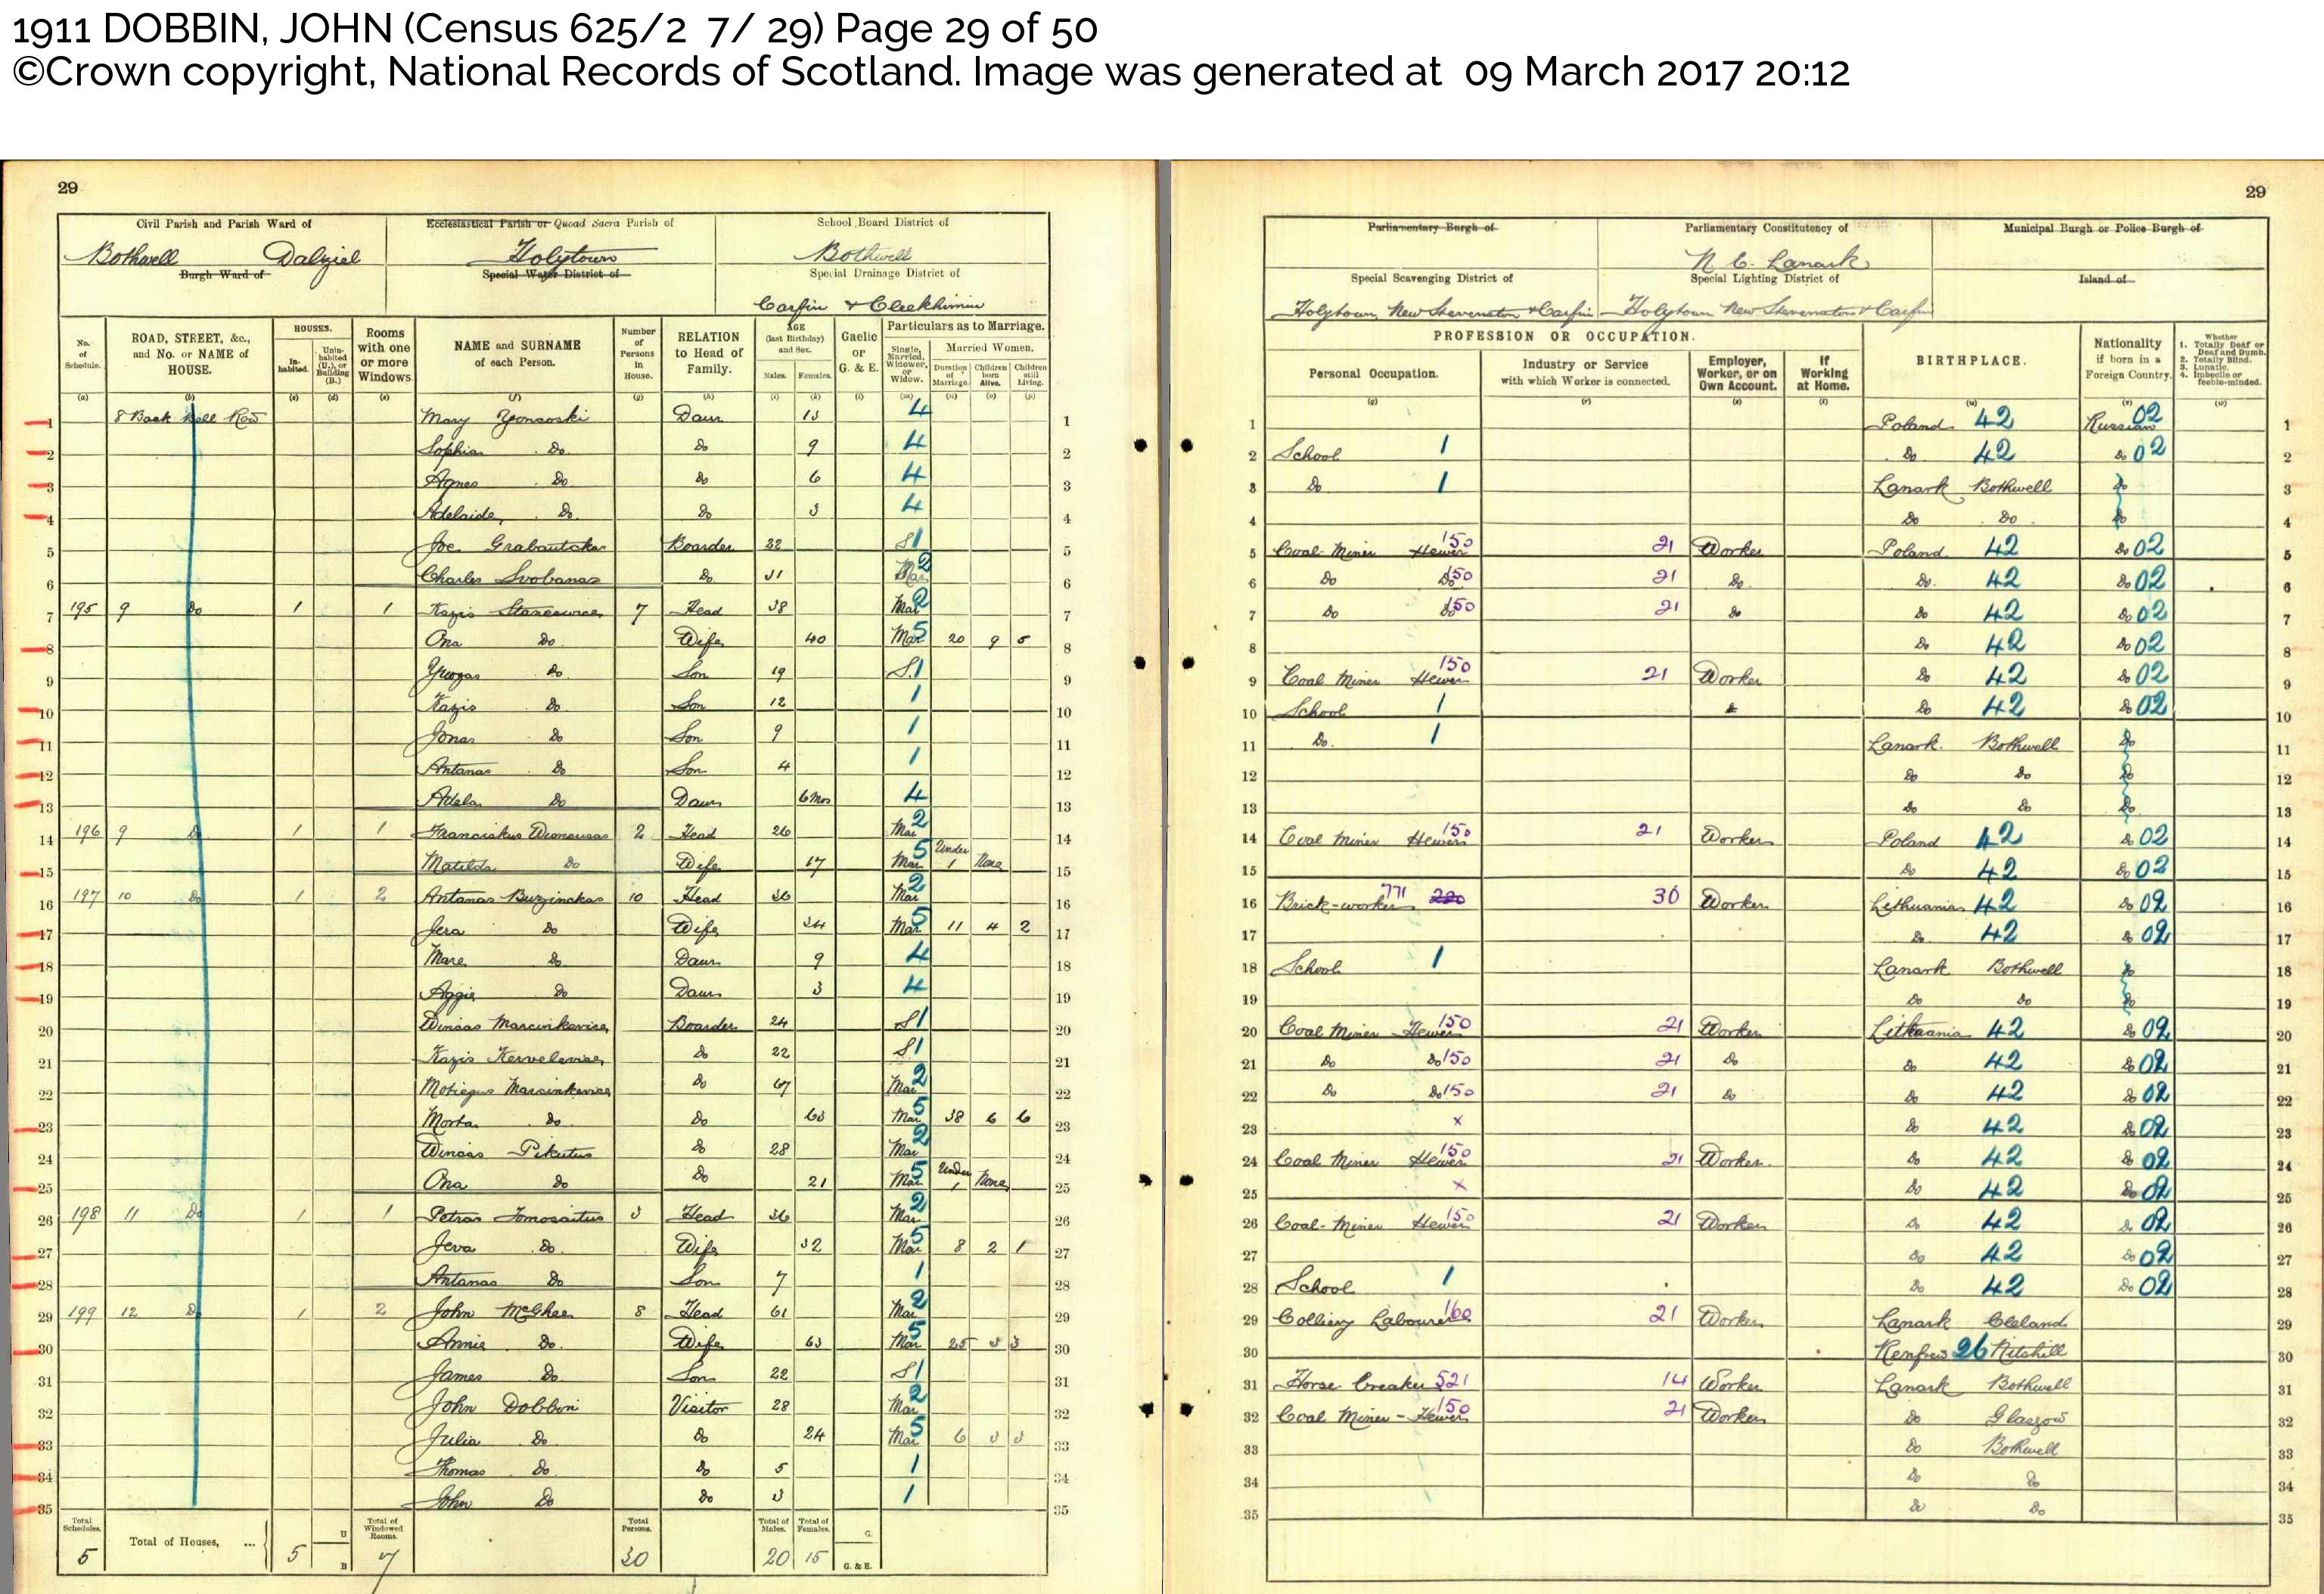 1911 DOBBIN, JOHN (Census 625/2 7/ 29) Page 29 of 50
©Crown copyright, National Records of Scotland. Image was generated at 09 March 2017 20:12
29
Civil Parish and Parish Ward of Ecclesiastical Parish or Quoad Sacra Parish of School Board District of
Bothwell Dalziel Holytown Bothwell
Burgh Ward of Special Water District of Special Drainage District of
Carfin & Cleekhimin
No. of Schedule. ROAD, STREET, &c., and No. or NAME of HOUSE. HOUSES. Inhabited. Uninhabited (U.), or Building (B.) Rooms with one or more Windows NAME and SURNAME of each Person. Number of Persons in House. RELATION to Head of Family. AGE (last Birthday) and Sex. Males. Females. Gaelic or G. & E. Particulars as to Marriage. Single, Married, Widower, or Widow. Married Women. Duration of Marriage. Children born Alive. Children still Living.
1 8 Back Row Mary Daur 13 4 1
2 Sophia Do Do 9 4 2
3 Agnes Do Do 6 4 3
4 Adelaide Do Do 3 4 4
5 Joe Boarder 32 S 1 5
6 Charles Svobanas Do 31 Mar 2 6
195 9 Do 1 1 Kazis 7 Head 38 Mar 2 7
8 Ona Do Wife 40 Mar 5 20 9 5 8
9 Do Son 19 S 1 9
10 Kazis Do Son 12 1 10
11 Jonas Do Son 9 1 11
12 Antanas Do Son 4 1 12
13 Adela Do Daur 6 Mos 4 13
196 9 Do 1 1 Franciskus 2 Head 26 Mar 2 14
15 Matilda Do Wife 17 Mar 5 Under 1 None 15
197 10 Do 1 2 Antanas Buzinckas 10 Head 36 Mar 2 16
17 Jera Do Wife 34 Mar 5 11 4 2 17
18 Mare Do Daur 9 4 18
19 Aggie Do Daur 3 4 19
20 Winsas Marcinkevice Boarder 24 S 1 20
21 Kazis Do 22 S 1 21
22 Marcinkevice Do 67 Mar 2 22
23 Morta Do Do 63 Mar 5 38 6 6 23
24 Winsas Pikutus Do 28 Mar 2 24
25 Ona Do Do 21 Mar 5 Under 1 None 25
198 11 Do 1 1 Petras Tomosaitus 3 Head 36 Mar 2 26
27 Jeva Do Wife 32 Mar 5 8 2 1 27
28 Antanas Do Son 7 1 28
199 12 Do 1 2 John McGhee 8 Head 61 Mar 2 29
30 Annie Do Wife 63 Mar 5 25 3 3 30
31 James Do Son 22 S 1 31
32 John Dobbin Visitor 28 Mar 2 32
33 Julia Do Do 24 Mar 5 6 3 3 33
34 Thomas Do Do 5 1 34
35 John Do Do 3 1 35
Total Schedules. 5 Total of Houses, ... 5 U B Total of Windowed Rooms. 7 Total Persons. 30 Total of Males. 20 Total of Females. 15 G. G. & E.
29
Parliamentary Burgh of Parliamentary Constitutency of Municipal Burgh or Police Burgh of
N E. Lanark
Special Scavenging District of Special Lighting District of Island of
Holytown, New Stevenston & Carfin Holytown New Stevenston & Carfin
PROFESSION OR OCCUPATION. BIRTHPLACE. Nationality if born in a Foreign Country. Whether 1. Totally Deaf or Deaf and Dumb. 2. Totally Blind. 3. Lunatic. 4. Imbecile or feeble-minded.
Personal Occupation. Industry or Service with which Worker is connected. Employer, Worker, or on Own Account. If Working at Home.
1 Poland 42 Russian 02 1
2 School 1 Do 42 Do 02 2
3 Do 1 Lanark Bothwell Do 3
4 Do Do Do 4
5 Coal-Miner Hewer 150 21 Worker Poland 42 Do 02 5
6 Do Do 150 21 Do Do 42 Do 02 6
7 Do Do 150 21 Do Do 42 Do 02 7
8 Do 42 Do 02 8
9 Coal Miner Hewer 150 21 Worker Do 42 Do 02 9
10 School 1 Do 42 Do 02 10
11 Do 1 Lanark Bothwell Do 11
12 Do Do Do 12
13 Do Do Do 13
14 Coal Miner Hewer 150 21 Worker Poland 42 Do 02 14
15 Do 42 Do 02 15
16 Brick-worker 771 220 30 Worker Lithuania 42 Do 02 16
17 Do 42 Do 02 17
18 School 1 Lanark Bothwell Do 18
19 Do Do Do 19
20 Coal Miner Hewer 150 21 Worker Lithuania 42 Do 02 20
21 Do Do 150 21 Do Do 42 Do 02 21
22 Do Do 150 21 Do Do 42 Do 02 22
23 x Do 42 Do 02 23
24 Coal Miner Hewer 150 21 Worker Do 42 Do 02 24
25 x Do 42 Do 02 25
26 Coal-Miner Hewer 150 21 Worker Do 42 Do 02 26
27 Do 42 Do 02 27
28 School 1 Do 42 Do 02 28
29 Colliery Labourer 160 21 Worker Lanark Cleland 29
30 Renfrew 26 Nitshill 30
31 Horse Breaker 521 14 Worker Lanark Bothwell 31
32 Coal Miner - Hewer 150 21 Worker Do Glasgow 32
33 Do Bothwell 33
34 Do Do 34
35 Do Do 35